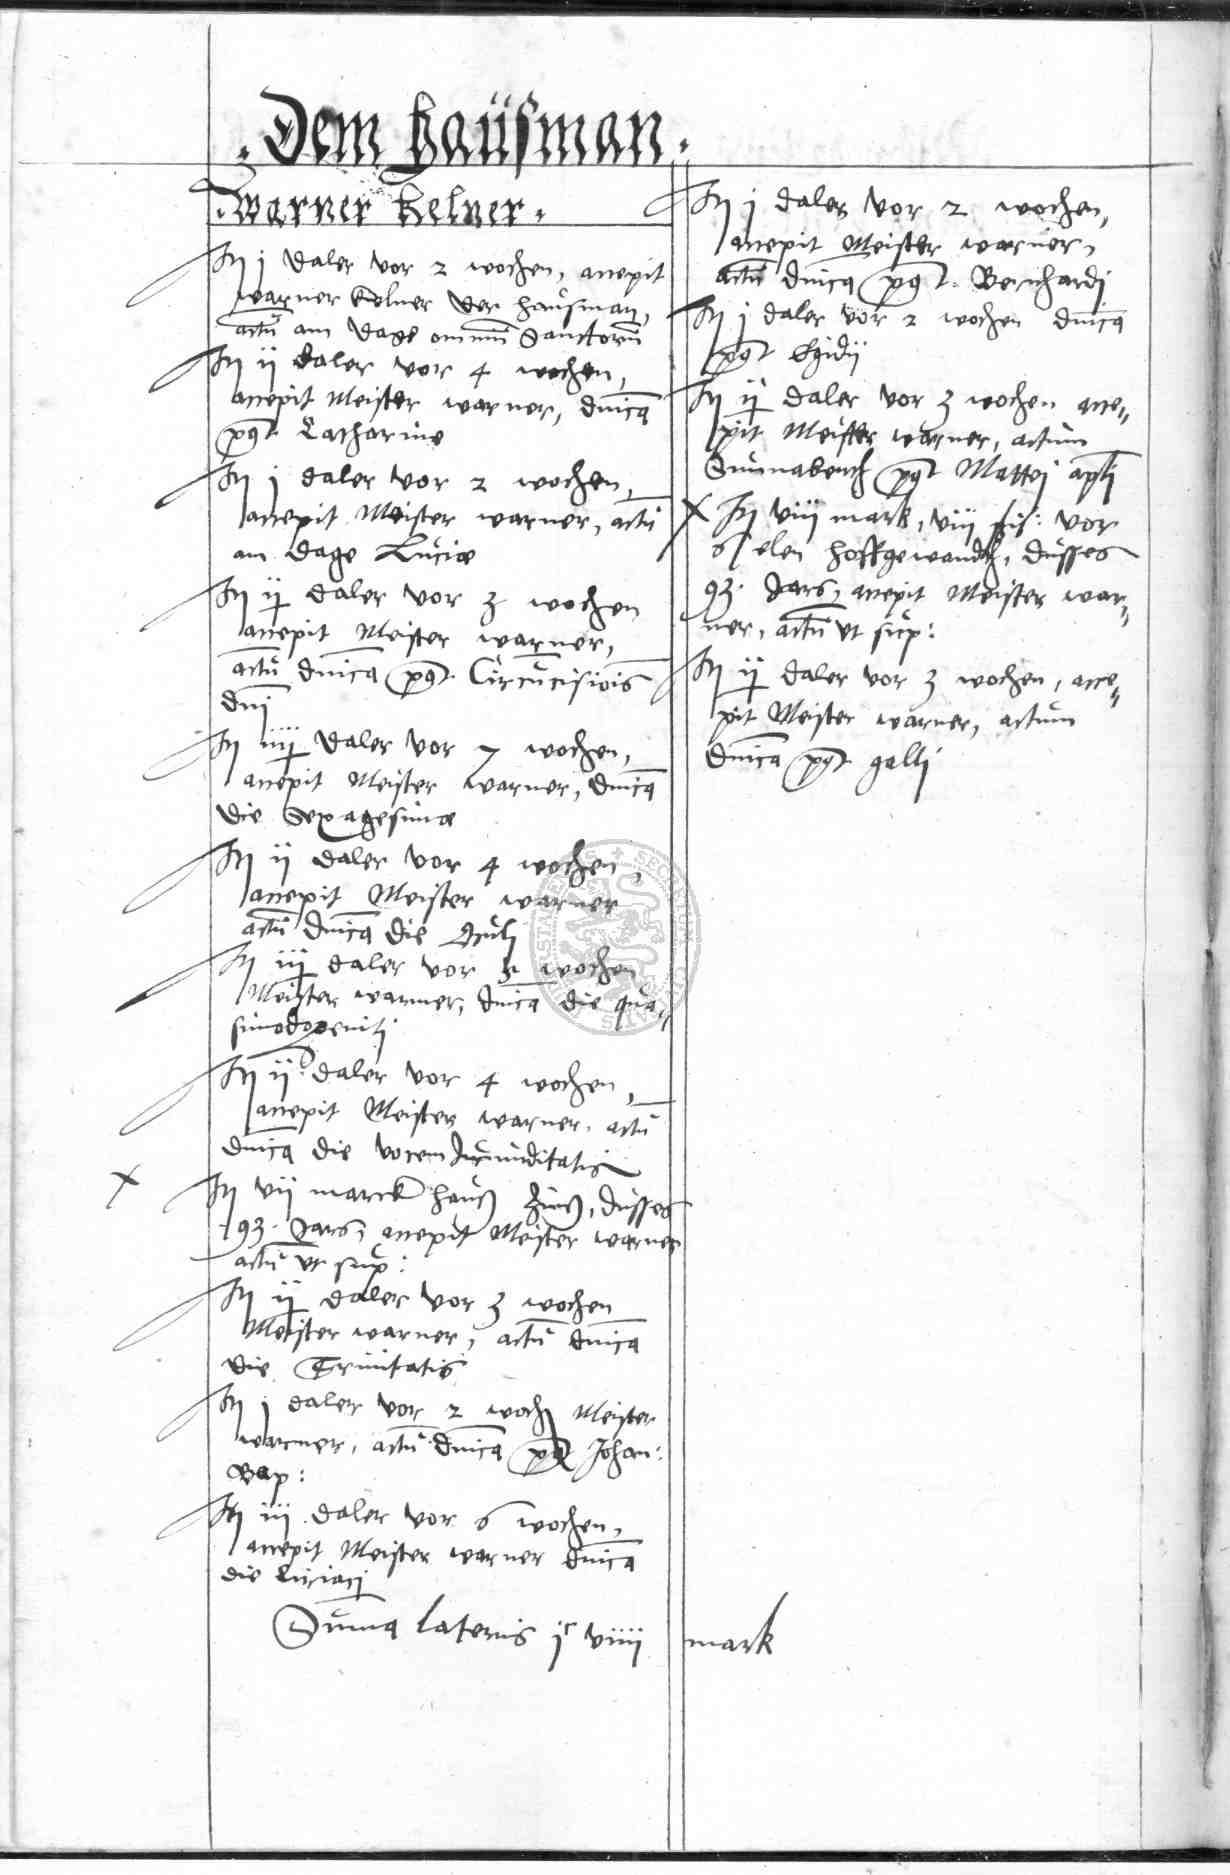 . Dem haüsman .
. Warner Kelner .
Itꝫ j daler vor 2 wochen, accepit
warner Kelner der haüsman,
actū am dage omniū Sanctorū
Itꝫ ij daler vor 4 wochen,
accepit Meister warner, dn̄ica
post Catharine
Itꝫ j daler vor 2 wochen,
accepit Meister warner, actū
am dage Lüciæ
Itꝫ ij daler vor 3 wochen
accepit Meister warner,
actū dn̄ica post Circūcisiōis
dn̄j
Itꝫ iiij daler vor 7 wochen,
accepit Meister warner, dn̄ica
die Sexagesimæ
Itꝫ ij daler vor 4 wochen,
accepit Meister warner
actū dn̄ica die Oculj
Itꝫ iij daler vor 5 wochen
Meister warner, dn̄ica die qua„
simodogenitj
Itꝫ ij daler vor 4 wochen,
accepit Meister warner, actū
dn̄ica die vocem Jucunditatis
Itꝫ vij marck haüß Zinß, düsses
.93. Jars, accepit Meister warner
actū vt sup:
Itꝫ ij daler vor 3 wochen
Meister warner, actū dn̄ica
die Trinitatis
Itꝫ j daler vor 2 woch Meister
warner, actū dn̄ica post Johan:
Bap:
Itꝫ iij daler vor 6 wochen,
accepit Meister warner dn̄ica
die Ciriacj
Sum̄a lateris jc viiij mark
Itꝫ j daler vor 2 wochen,
accepit Meister warner,
actū dn̄ica post Bernhardj
Itꝫ j daler vor 2 wochen dn̄ica
post Egidij
Itꝫ ij daler vor 3 wochen acce„
pit Meister warner, actum
Sunnabendt post Mattej apl̄j
Itꝫ viij mark, viij sis: vor
6 elen hoffgewandt, düsses
93. Jars, accepit Meister war„
ner, actū vt sup:
Itꝫ ij daler vor 3 wochen, acce„
pit Meister warner, actum
dn̄ica post gallj